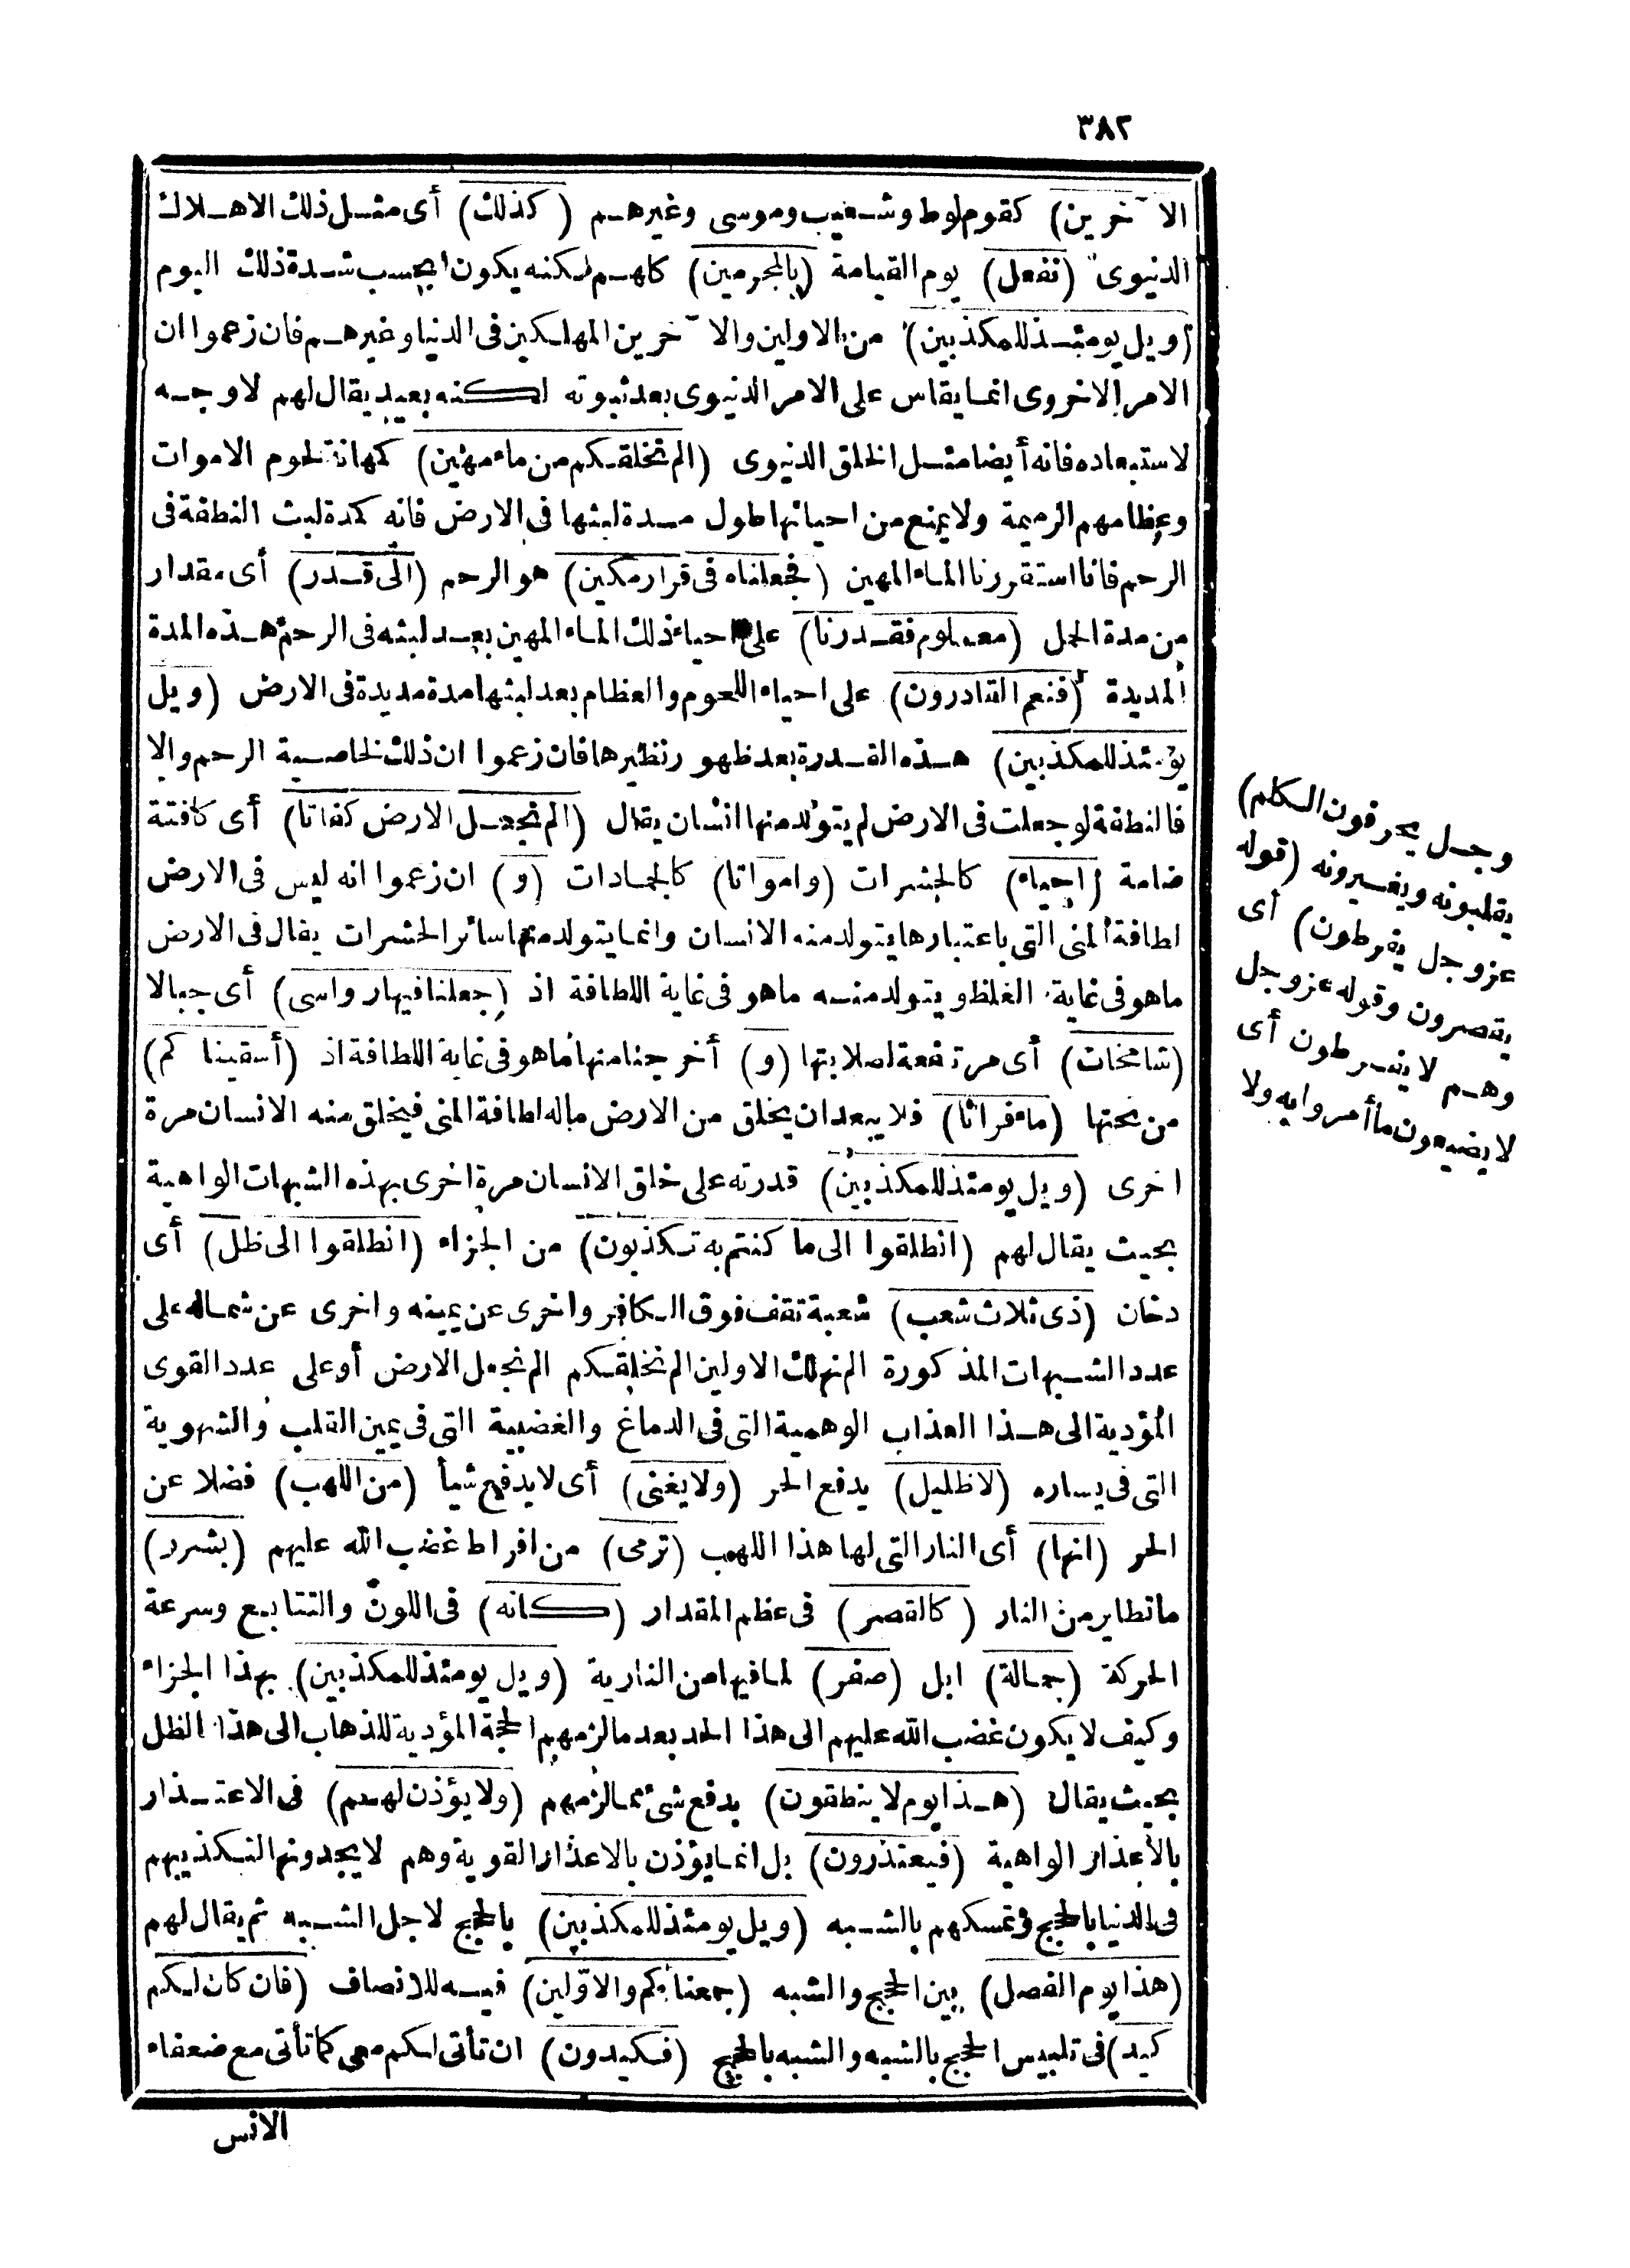 ٣٨٢
الآخرين) كقوم لوط وشعيب وموسى وغيرهم (كذلك) أى مثل ذلك الاهلاك
الدنيوى (نفعل) يوم القيامة (بالمجرمين) كلهم لكنه يكون بحسب شدة ذلك اليوم
(ويل يومئذ للمكذبين) من الاولين والآخرين المهلكين فى الدنيا وغيرهم فان زعموا ان
الامر الاخروى انما يقاس على الامر الدنيوى بعد ثبوته لكنه بعيد يقال لهم لا وجه
لاستبعاده فانه أيضا مثل الخلق الدنيوى (الم نخلقكم من ماء مهين) كمهانة لحوم الاموات
وعظامهم الرميمة ولا يمنع من احيائها طول مدة لبثها فى الارض فانه كمدة لبث النطفة فى
الرحم فانا استقررنا الماء المهين (فجعلناه فى قرار مكين) هو الرحم (الى قدر) أى مقدار
من مدة الحمل (معلوم فقدرنا) على احياء ذلك الماء المهين بعد لبثه فى الرحم هذه المدة
المديدة (فنعم القادرون) على احياء اللحوم والعظام بعد لبثها مدة مديدة فى الارض (ويل
يومئذ للمكذبين) هذه القدرة بعد ظهور نظيرها فان زعموا ان ذلك لخاصية الرحم والا
فالنطفة لو جعلت فى الارض لم يتولد منها انسان يقال (الم نجعل الارض كفاتا) أى كافتة
ضامة (احياء) كالحشرات (وامواتا) كالجمادات (و) ان زعموا انه ليس فى الارض
لطافة المنى التى باعتبارها يتولد منه الانسان وانما يتولد منها سائر الحشرات يقال فى الارض
ما هو فى غاية الغلظ ويتولد منه ما هو فى غاية اللطافة اذ (جعلنا فيها رواسى) أى جبالا
(شامخات) أى مرتفعة لصلابتها (و) أخرجنا منها ما هو فى غاية اللطافة اذ (أسقيناكم)
من تحتها (ماء فراتا) فلا يبعد ان يخلق من الارض ماله لطافة المنى فيخلق منه الانسان مرة
اخرى (ويل يومئذ للمكذبين) قدرته على خلق الانسان مرة اخرى بهذه الشبهات الواهية
بحيث يقال لهم (انطلقوا الى ما كنتم به تكذبون) من الجزاء (انطلقوا الى ظل) أى
دخان (ذى ثلاث شعب) شعبة تقف فوق الكافر واخرى عن يمينه واخرى عن شماله على
عدد الشبهات المذكورة الم نهلك الاولين الم نخلقكم الم نجعل الارض أو على عدد القوى
المؤدية الى هذا العذاب الوهمية التى فى الدماغ والغضبية التى فى يمين القلب والشهوية
التى فى يساره (لا ظليل) يدفع الحر (ولا يغنى) أى لا يدفع شيأ (من اللهب) فضلا عن
الحر (انها) أى النار التى لها هذا اللهب (ترمى) من افراط غضب الله عليهم (بشرر)
ما تطاير من النار (كالقصر) فى عظم المقدار (كانه) فى اللون والتتابع وسرعة
الحركة (جمالة) ابل (صفر) لما فيها من النارية (ويل يومئذ للمكذبين) بهذا الجزاء
وكيف لا يكون غضب الله عليهم الى هذا الحد بعد ما لزمهم الحجة المؤدية للذهاب الى هذا الظل
بحيث يقال (هذا يوم لا ينطقون) بدفع شئ مما لزمهم (ولا يؤذن لهم) فى الاعتذار
بالأعذار الواهية (فيعتذرون) بل انما يؤذن بالاعذار القوية وهم لا يجدونها لتكذيبهم
فى الدنيا بالحجج وتمسكهم بالشبه (ويل يومئذ للمكذبين) بالحجج لاجل الشبه ثم يقال لهم
(هذا يوم الفصل) بين الحجج والشبه (جمعناكم والاوّلين) فيه للانصاف (فان كان لكم
كيد) فى تلبيس الحجج بالشبه والشبه بالحجج (فكيدون) ان تأتى لكم معى كما تأتى مع ضعفاء
الانس
وجل يحرفون الكلم)
يقلبونه ويغيرونه (قوله
عز وجل يفرطون) أى
يقصرون وقوله عز وجل
وهم لا يفرطون أى
لا يضيعون ما أمروا به ولا